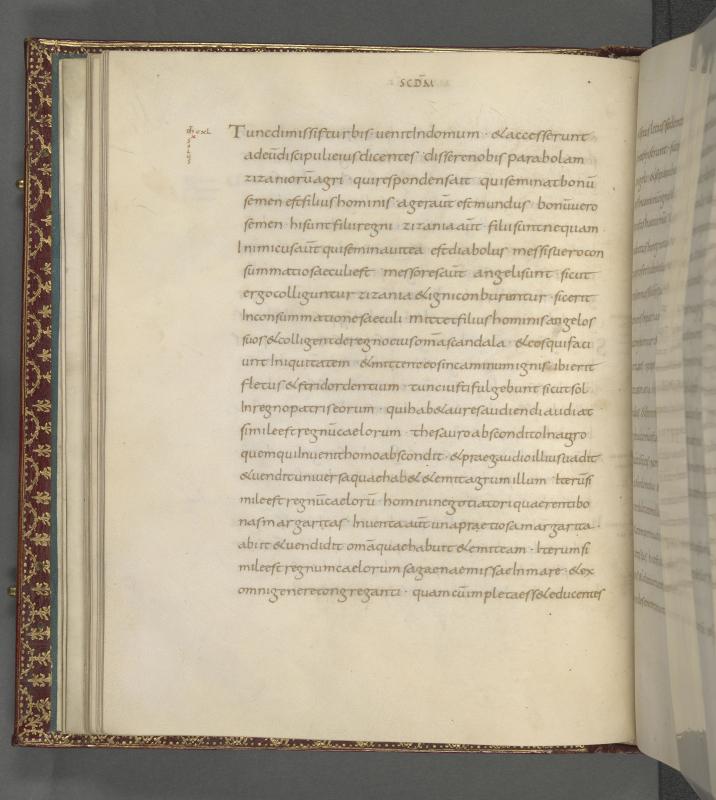 SCDM̄
Tunc dimissis turbis · uenit In domum · & accesserunt
ad eū discipuli eius dicentes · dissere nobis parabolam
zizaniorū agri · qui respondens ait · qui seminat bonū
semen est filius hominis · ager aūt est mundus · bonū uero
semen hi sunt filii regni · zizania aūt · filii sunt nequam ·
Inimicus aūt qui seminauit ea · est diabolus · messis uero con
summatio saeculi est · messores aūt · angeli sunt · sicut
ergo colliguntur zizania & igni conburuntur · sic erit
In consummatione saeculi · mittet filius hominis angelos
suos & colligent de regno eius oma scandala · & eos qui faci
unt Iniquitatem · & mittent eos in caminum ignis · ibi erit
fletus & stridor dentium · tunc iusti fulgebunt sicut sol
In regno patris eorum · qui hab& aures audiendi audiat ·
simile est regnū caelorum · thesauro abscondito In agro
quem qui Inuenit homo abscondit · & prae gaudio illius uadit
& uendit uniuersa quae hab& & emit agrum illum · Iterū si
mile est regnū caelorū · homini negotiatori quaerenti bo
nas margaritas · Inuenta aūt una praetiosa margarita ·
abiit & uendidit omā quae habuit & emit eam · Iterum si
mile est regnum caelorum sagaenae missae In mare · & ex
omni genere congreganti · quam cū impleta ess& educentes